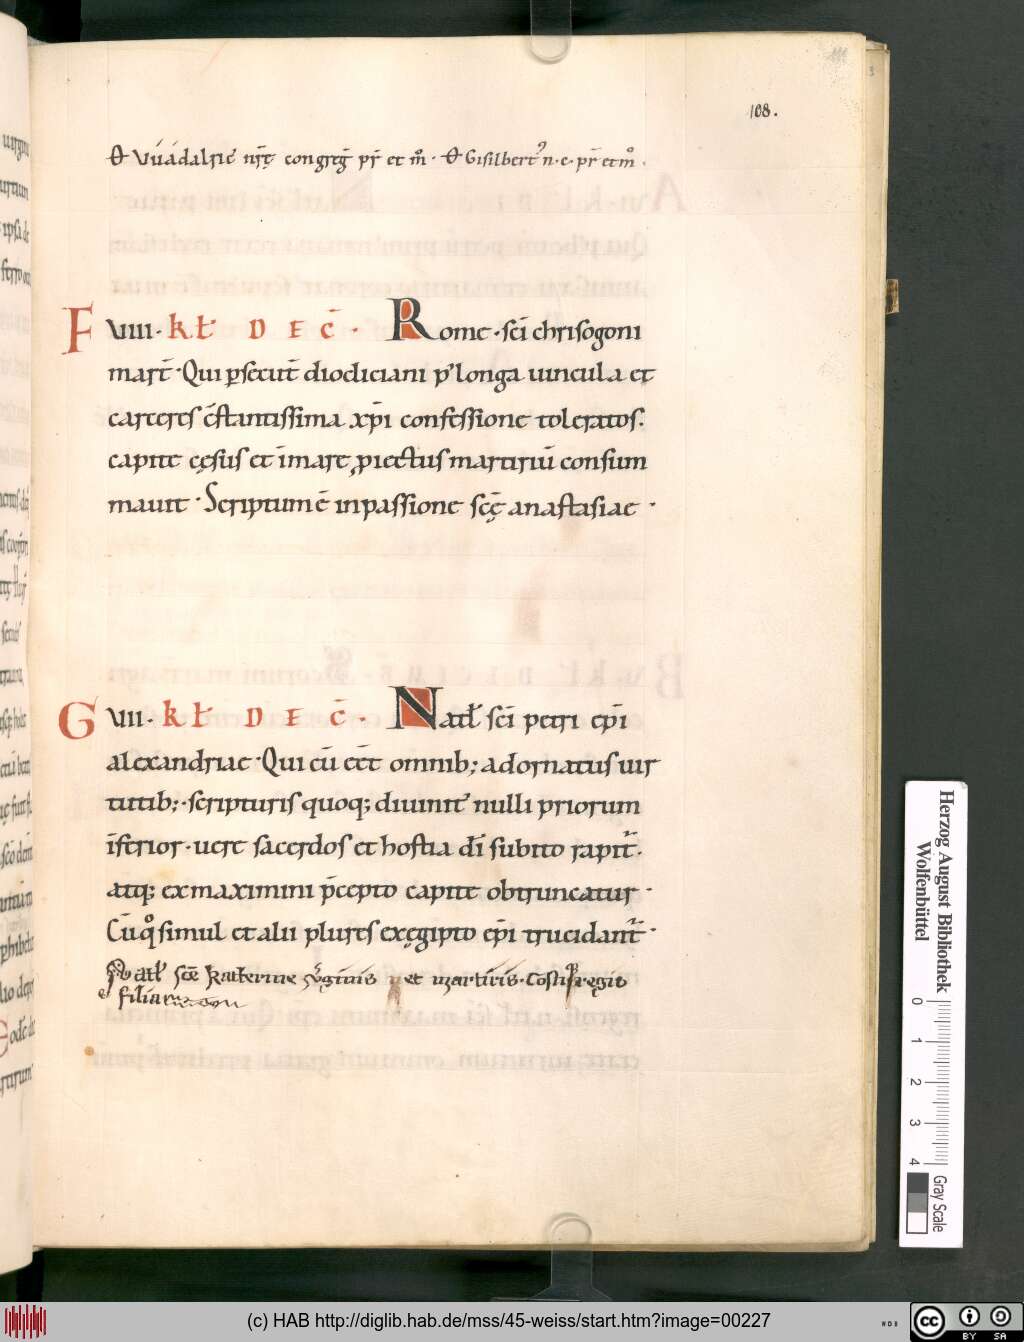 108.
Ꝋ Vúádalric̄ nr̄ę congreḡ pr̄ et m̊. Ꝋ Gisilbert᾽ n. c. pr̄ et m̊.
F VIIII. kl̄ DEC̄. Rome. sc̄i chrisogoni
mart̄. Qui ꝑsecut̄ diocliciani p᾽ longa uincula et
carceres c̄stantissima xp̄i confessione toleratos.
capite cęsus et ī mare ꝓiectus martiriū consum
mauit. Scriptum ē in passione sc̄ę anastasiae.
G VIII. kl̄ DEC̄. Natł sc̄i petri ep̄i
alexandriae. Qui cū eēt omnib; adornatus uir
tutib;. scripturis quoq; diuinit᾽ nulli priorum
īferior. uere sacerdos et hostia dī subito rapit᷑.
atq; ex maximini p̄cepto capite obtruncatur.
Cū q̊ simul et alii plures ex ęgipto ep̄i trucidant᷑.
Natł sc̄e katerine v᷑ginis et martiris. Costi regis
filia
Herzog August Bibliothek
Wolfenbüttel
0 1 2 3 4
Gray Scale
(c) HAB http://diglib.hab.de/mss/45-weiss/start.htm?image=00227
WDB
cc BY SA